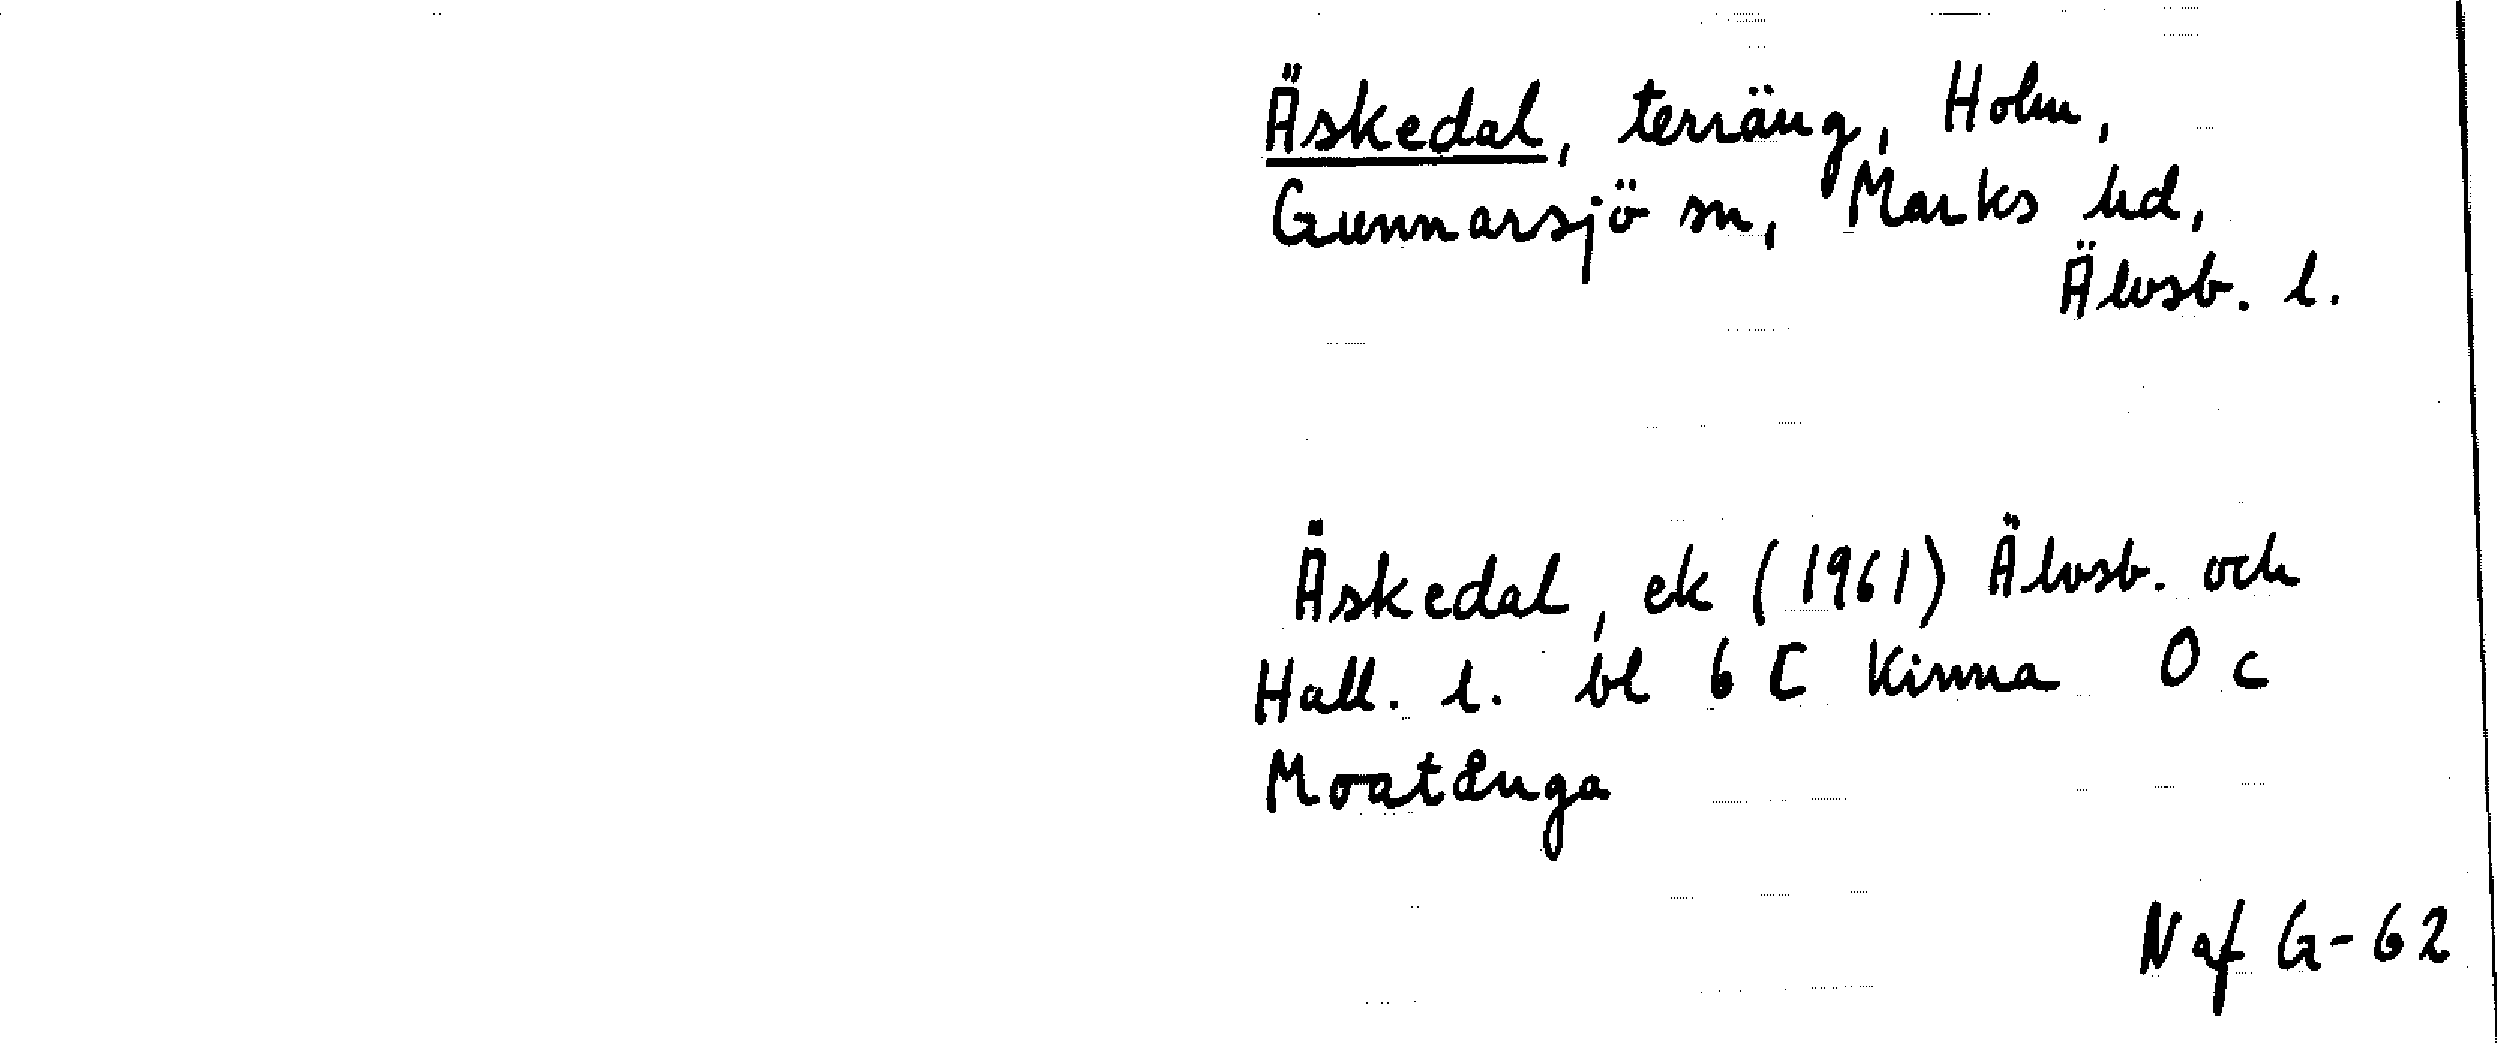 Äskedal, terräng, Holm,
Gunnarsjö sn, Marks hd,
Älvsb. l.
Äskedal, ek (1961) Älvsb. och
Hall. l. bl 6 C Kinna 0 c
Moatånga
Naf G-62